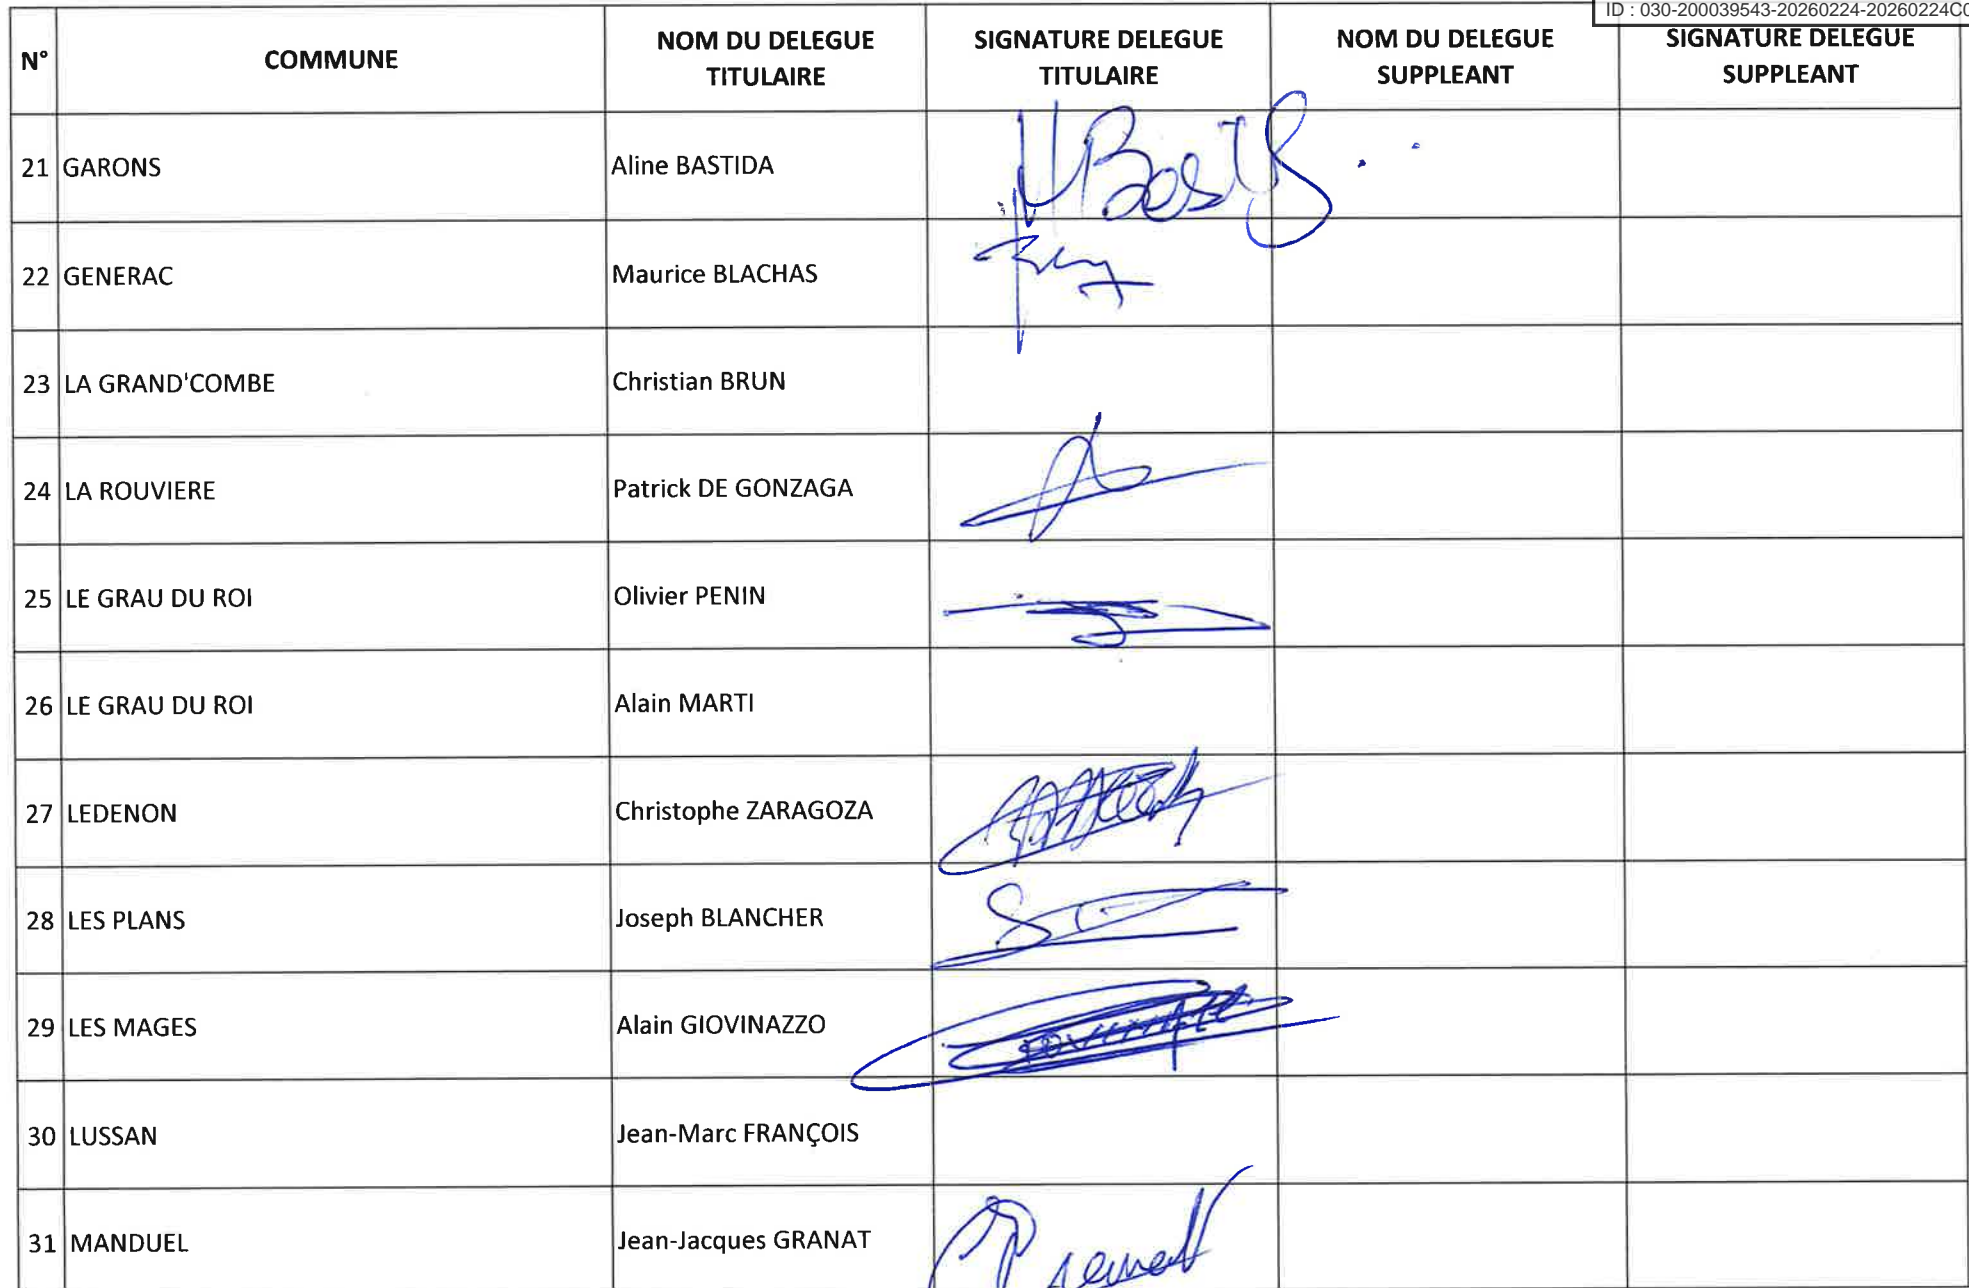 ID : 030-200039543-20260224-20260224C0
N° COMMUNE NOM DU DELEGUE TITULAIRE SIGNATURE DELEGUE TITULAIRE NOM DU DELEGUE SUPPLEANT SIGNATURE DELEGUE SUPPLEANT
21 GARONS Aline BASTIDA
22 GENERAC Maurice BLACHAS
23 LA GRAND'COMBE Christian BRUN
24 LA ROUVIERE Patrick DE GONZAGA
25 LE GRAU DU ROI Olivier PENIN
26 LE GRAU DU ROI Alain MARTI
27 LEDENON Christophe ZARAGOZA
28 LES PLANS Joseph BLANCHER
29 LES MAGES Alain GIOVINAZZO
30 LUSSAN Jean-Marc FRANÇOIS
31 MANDUEL Jean-Jacques GRANAT